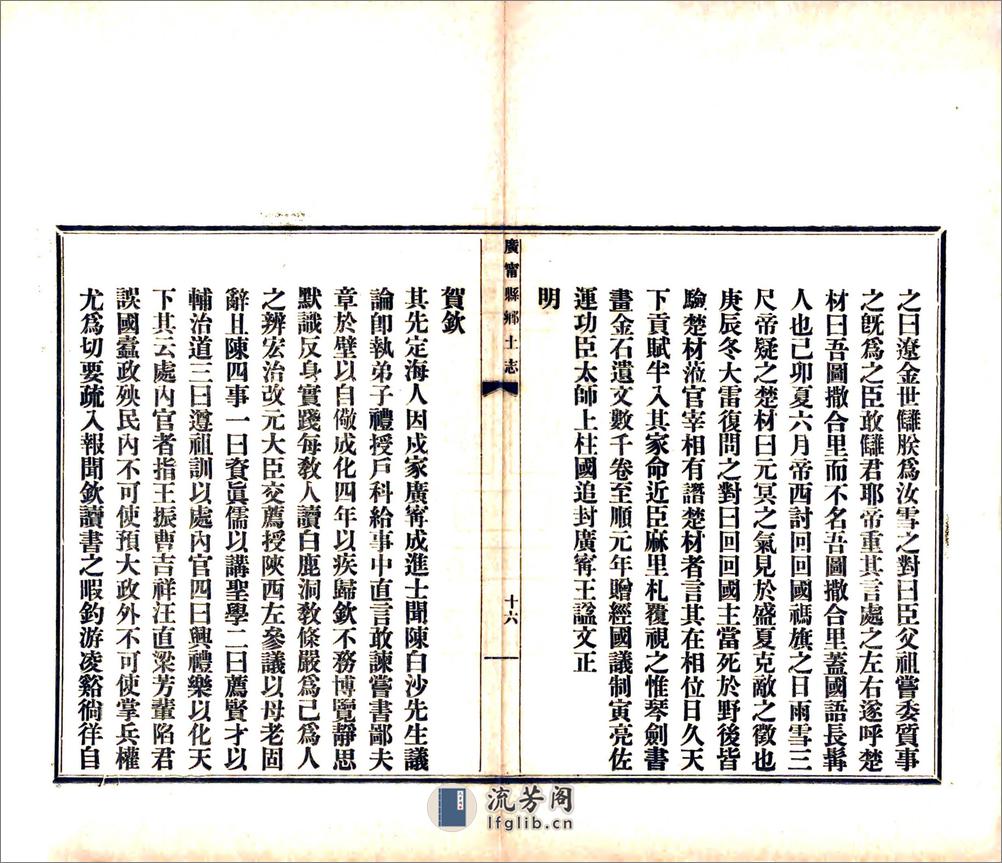 之曰遼金世讎朕爲汝雪之對曰臣父祖嘗委質事
之旣爲之臣敢讎君耶帝重其言處之左右遂呼楚
材曰吾圖撒合里而不名吾圖撒合里蓋國語長髯
人也己卯夏六月帝西討回回國禡旗之日雨雪三
尺帝疑之楚材曰元冥之氣見於盛夏克敵之徵也
庚辰冬大雷復問之對曰回回國主當死於野後皆
驗楚材蒞官宰相有譖楚材者言其在相位日久天
下貢賦半入其家命近臣麻里札覆視之惟琴劍書
畫金石遺文數千卷至順元年贈經國議制寅亮佐
運功臣太師上柱國追封廣甯王諡文正
明
廣甯縣鄉土志
十六
賀欽
其先定海人因戍家廣甯成進士聞陳白沙先生議
論卽執弟子禮授戶科給事中直言敢諫嘗書鄙夫
章於壁以自儆成化四年以疾歸欽不務博覽靜思
默識反身實踐每敎人讀白鹿洞敎條嚴爲己爲人
之辨宏治改元大臣交薦授陝西左參議以母老固
辭且陳四事一曰資眞儒以講聖學二曰薦賢才以
輔治道三曰遵祖訓以處內官四曰興禮樂以化天
下其云處內官者指王振曹吉祥汪直梁芳輩陷君
誤國蠹政殃民內不可使預大政外不可使掌兵權
尤爲切要疏入報聞欽讀書之暇釣游凌谿徜徉自
流芳阁
lfglib.cn